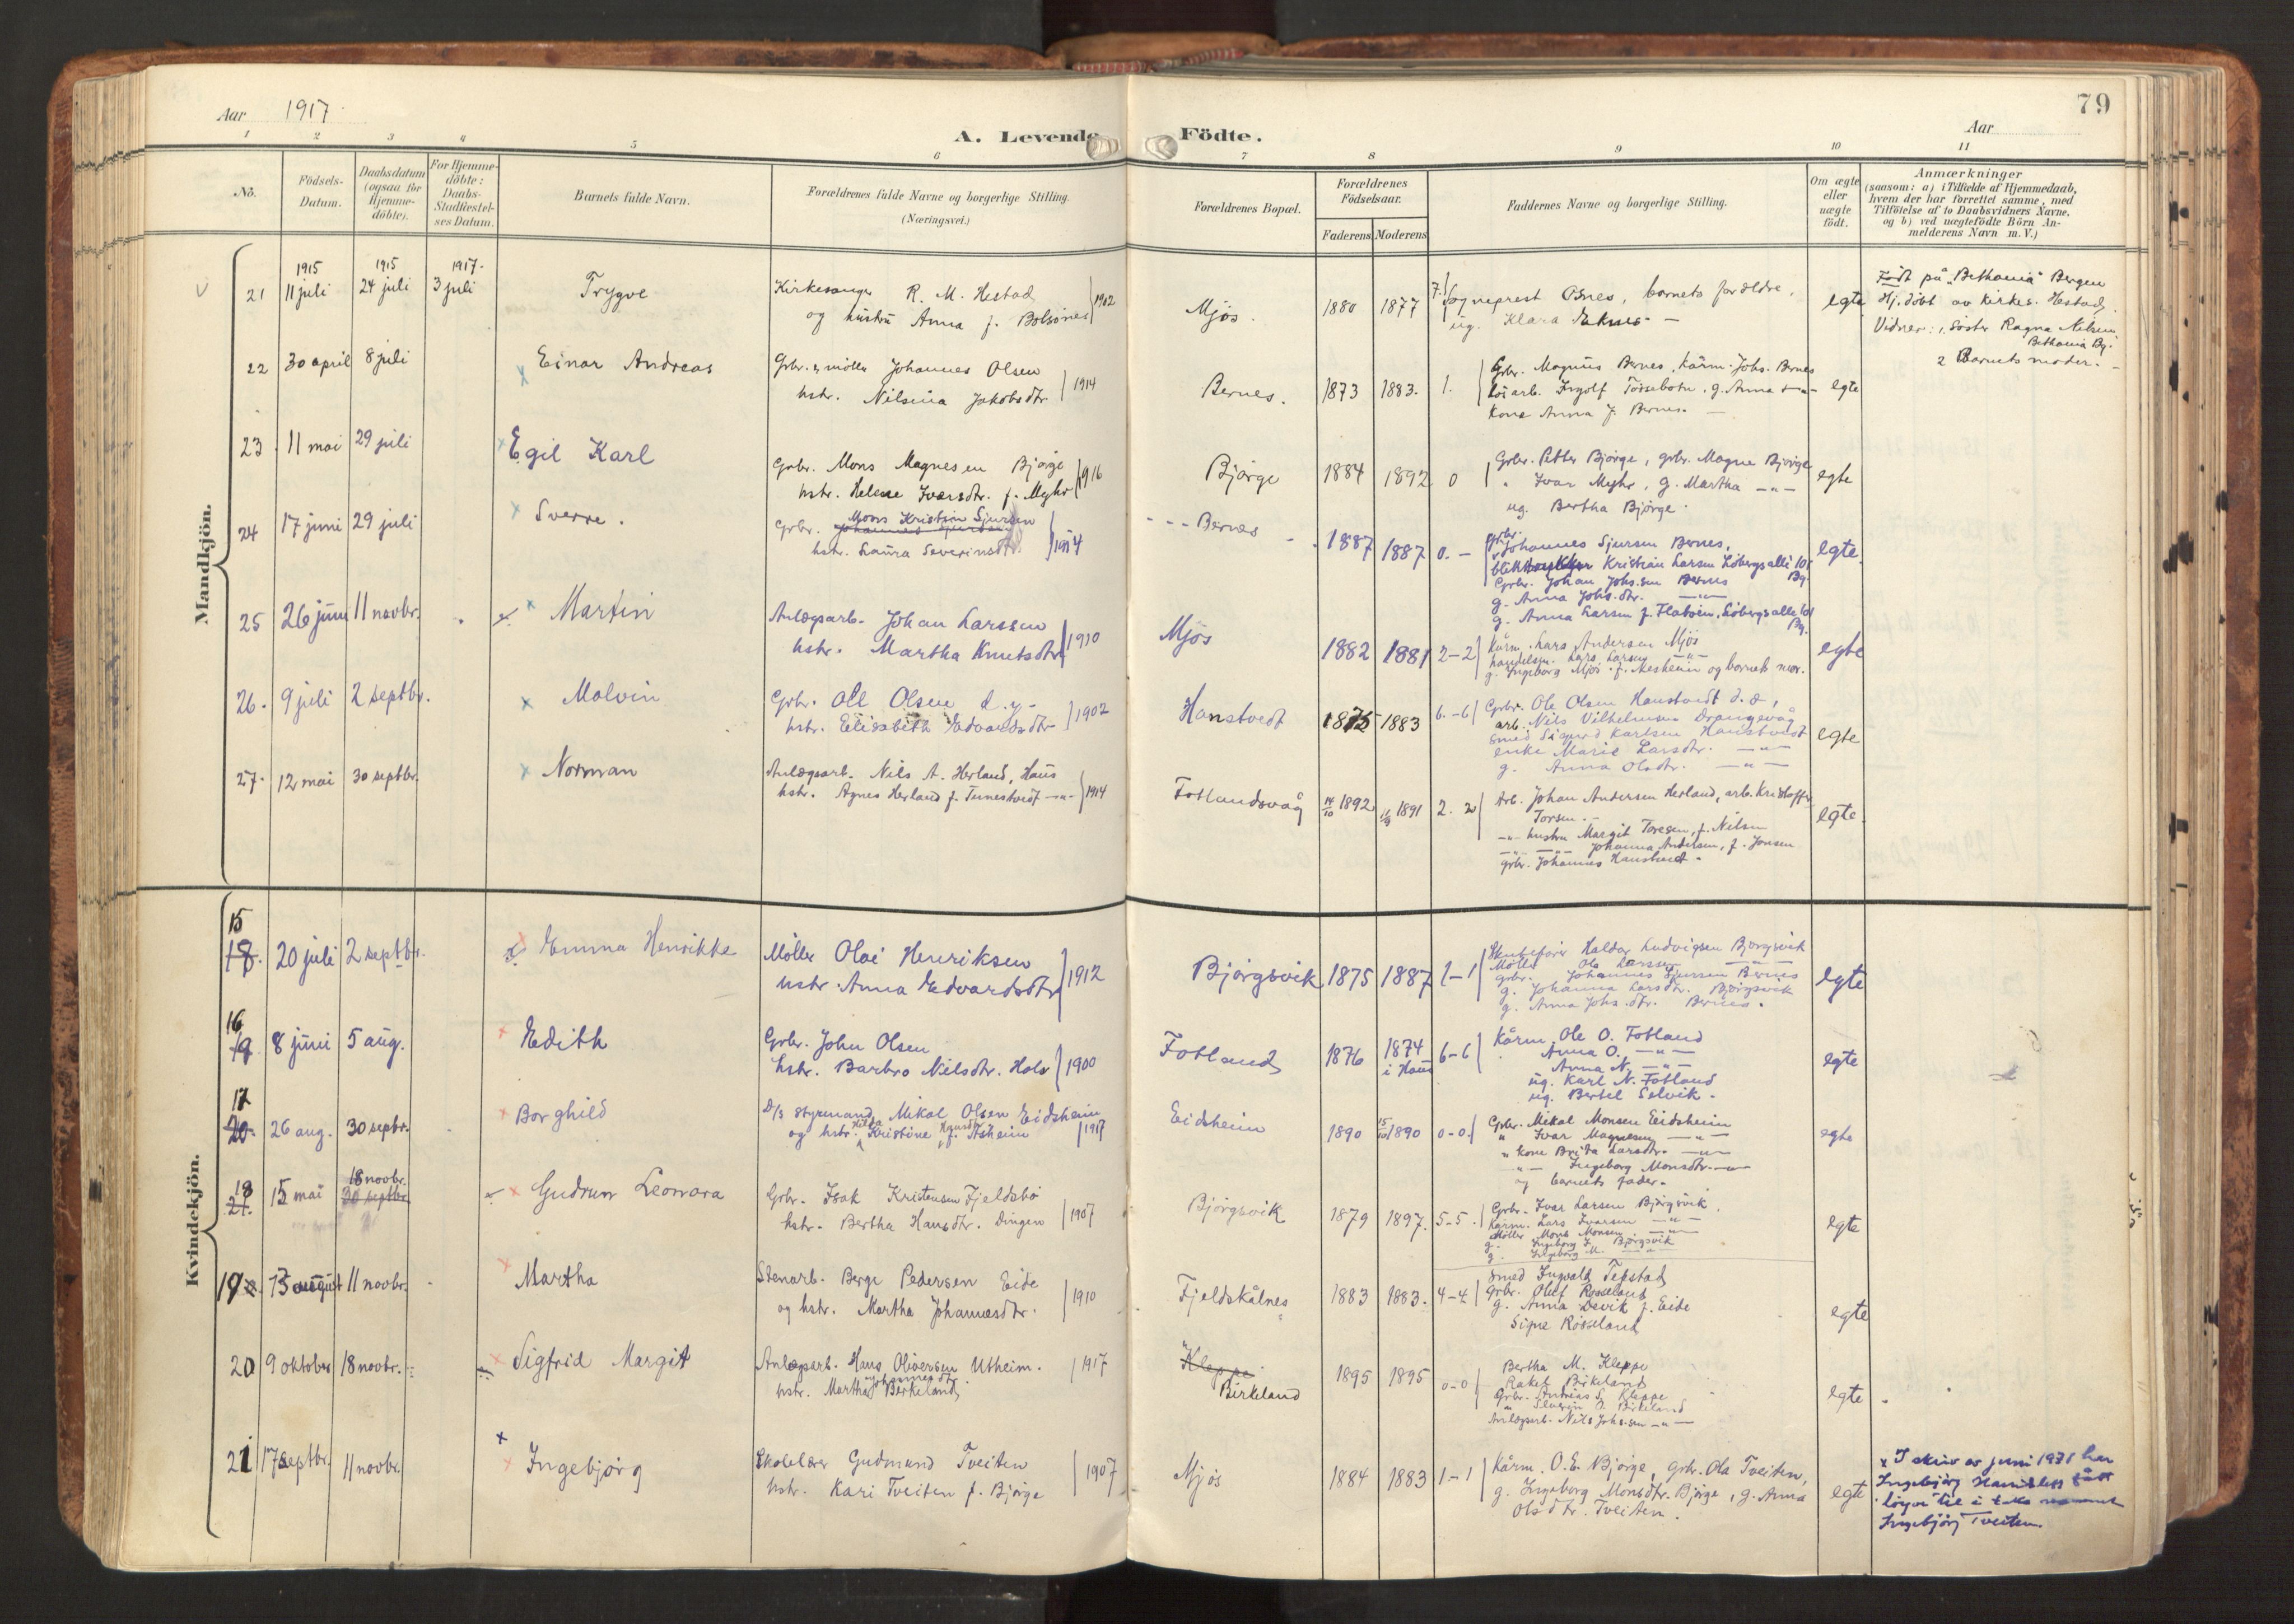 Aar 1917
A. Levende Födte.
79
Aar
1 2 3 4 5 6 7 8 9 10 11
No. Födsels-Datum. Daabsdatum (ogsaa for Hjemmedöbte). For Hjemmedöbte: Daabs-Stadfæstelses Datum. Barnets fulde Navn. Forældrenes fulde Navne og borgerlige Stilling. (Næringsvei.) Forældrenes Bopæl. Forældrenes Födselsaar. Faderens Moderens Faddernes Navne og borgerlige Stilling. Om ægte eller uægte födt. Anmærkninger (saasom: a) i Tilfælde af Hjemmedaab, hvem der har forrettet samme, med Tilföielse af to Daabsvidners Navne, og b) ved uægtefödte Börn Anmelderens Navn m. V.)
Mandkjön.
21 1915 11 juli 1915 24 juli 1917 3 juli Trygve Kirkesanger R. M. Hestad
og hustru Anna f. Bolsönes 1902 Mjös. 1880 1877 7. Sogneprest Osnes, barnets forældre,
ug. Klara Eknes — egte
Född på "Bethania" Bergen
Hj. döbt av kirkes. Hestad.
Vidner: 1, Söster Ragna Nilsen
Bethania Bg.
2 Barnets moder. —
22 30 april 8 juli Einar Andreas Grbr. & möller Johannes Olsen
hstr. Nilsina Jakobsdtr 1914 Bernes. 1873 1883. 1. Grbr. Magnus Bernes, kårm. Johs. Bernes
lösarb. Ingolf Tössebotn, g. Anna —"—
kone Anna f. Bernes. — egte
23 11 mai 29 juli Egil Karl Grbr. Mons Magnesen Björge
hstr. Helene Ivarsdtr. f. Myhr 1916 Björge 1884 1892 0 Grbr. Petter Björge, grbr. Magne Björge
" Ivar Myhr, g. Martha —"—
ug. Bertha Björge. egte
24 17 juni 29 juli Sverre. Grbr. Mons Kristian Sjursen
hstr. Laura Severinsdtr. 1914 Bernes 1887 1887 0. — Grbr.
Johannes Sjursen Bernes,
Kristian Larsen Löbergsalle 101 Bg.
Grbr. Johan Johs.sen Bernes
g. Anna Johs.dtr. —"—
g. Anna Larsen f. Flatöien, Löbergsalle 101 Bg. egte.
25 26 juni 11 novbr. Martin Anlægsarb. Johan Larssen
hstr. Martha Knutsdtr 1910 Mjös 1882 1881 2-2 Kårm. Lars Andersen Mjös
handelsm. Lars Larsen —"—
g. Ingeborg Mjös f. Mesheim og barnets mor. egte
26. 9 juli 2 septbr. Malvin Grbr. Ole Olsen d. y.
hstr. Elisabeth Edvardsdtr 1902 Hanstvedt 1875 1883 6.-6 Grbr. Ole Olsen Hanstvedt d. æ,
arb. Nils Vilhelmsen Drangevåg
smed Sigurd Karlsen Hanstvedt
enke Marie Larsdtr. —"—
g. Anna Olsdtr. —"— egte
27. 12 mai 30 septbr. Norman Anlægsarb. Nils A. Herland, Haus
hstr. Agnes Herland f. Tunestvedt —"— 1914 Fotlandsvåg 14/10 1892 11/9 1891 2. 2 Arb. Johan Andersen Herland, arb. Kristoffer
Torsen. —
—"— hustru Margit Toresen, f. Nilsen
—"— —"— Johanna Andersen, f. Jonsen
grbr. Johannes Hanstvedt. egte.
Kvindekjön.
15 18. 20 juli 2 septbr. Emma Henrikke Möller Olai Henriksen
hstr. Anna Edvardsdtr 1912 Björgsvik 1875 1887 1-1 Skutefører Haldor Ludvigsen Björgsvik
Möller Ole Larssen —"—
grbr. Johannes Sjursen Bernes
g. Johanna Larsdtr. Björgsvik
g. Anna Johs.dtr. Bernes. egte
16 19. 8 juni 5 aug. Edith Grbr. John Olsen
hstr. Barbro Nilsdtr. Hole 1900 Fotland 1876 1874 i Haus 6-6 Kårm. Ole O. Fotland
Anna O. —"—
Anna N. —"—
ug. Karl N. Fotland
ug. Bertel Selvik. egte
17 20 26 aug. 30 septbr. Borghild D/S styrmand Mikal Olsen Eidsheim
og hstr. Hilda Kristine f. Åsheim 1917 Eidsheim 1890 15/10 1890 0-0 Grbr. Mikal Monsen Eidsheim
" Ivar Magnesen —"—
" kone Brita Larsdtr. —"—
—"— Ingeborg Monsdtr. —"—
og barnets fader. egte
18 21. 15 mai 18 novbr. 30 septbr. Gudrun Leonora Grbr. Isak Kristensen Fjeldsbö
hstr. Bertha Hansdtr. Dingen 1907 Björgsvik 1879 1897. 5-5 Grbr. Ivar Larsen Björgsvik
Kårm. Lars Ivarsen —"—
Möller Mons Monsen —"—
g. Ingeborg I. Björgsvik
g. Ingeborg M. —"— egte
19 13 august 11 novbr. Martha Stenarb. Berge Pedersen Eide
og hstr. Martha Johannesdtr. 1910 Fjeldskålnes 1883 1883. 4-4 Smed Ingvald Tepstad
Grbr. Olaf Rosseland
g. Anna Devik f. Eide
Signe Rosseland egte
20 9 oktober 18 novbr. Sigfrid Margit Anlægsarb. Hans Oliversen Utheim.
hstr. Martha Johannesdtr. Birkeland 1917 Kleppe Birkeland 1895 1895 0-0 Bertha M. Kleppe
Rakel Birkeland
Grbr. Andreas S. Kleppe
" Severin J. Birkeland
Anlægsarb. Nils Johs.sen —"— egte.
21 17 septbr. 11 novbr. Ingebjörg Skolelærer Gudmund Tveiten
hstr. Kari Tveiten f. Björge 1907 Mjös 1884 1883 1-1 Kårm. O. E. Björge, grbr. Ola Tveiten,
g. Ingeborg Monsdtr. Björge, g. Anna
Olsdtr. Tveiten. egte
x I skriv av juni 1931 har
Ingebjörg fått
löyve til å taka
Ingebjörg Tveiten.